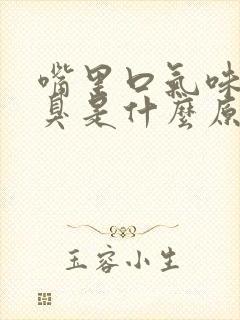 嘴里口氣味
臭是什麼原
玉容小生